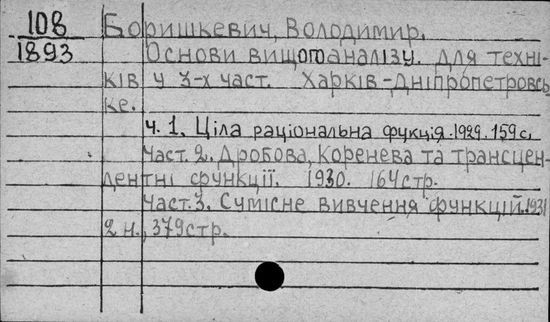 108
1893
Боришкевич, Володимир.
Основи вищого аналізу. для техні-
ків у 3-х част. Харків-Дніпропетровсь-
ке.
ч. 1. Ціла раціональна фукція. 1929. 159 с.
Част. 2. Дробова, Коренева та трансцен-
дентні функції. 1930. 164 стр.
Част. 3. Сумісне вивчення функцій. 1931
2 н., 379 стр.